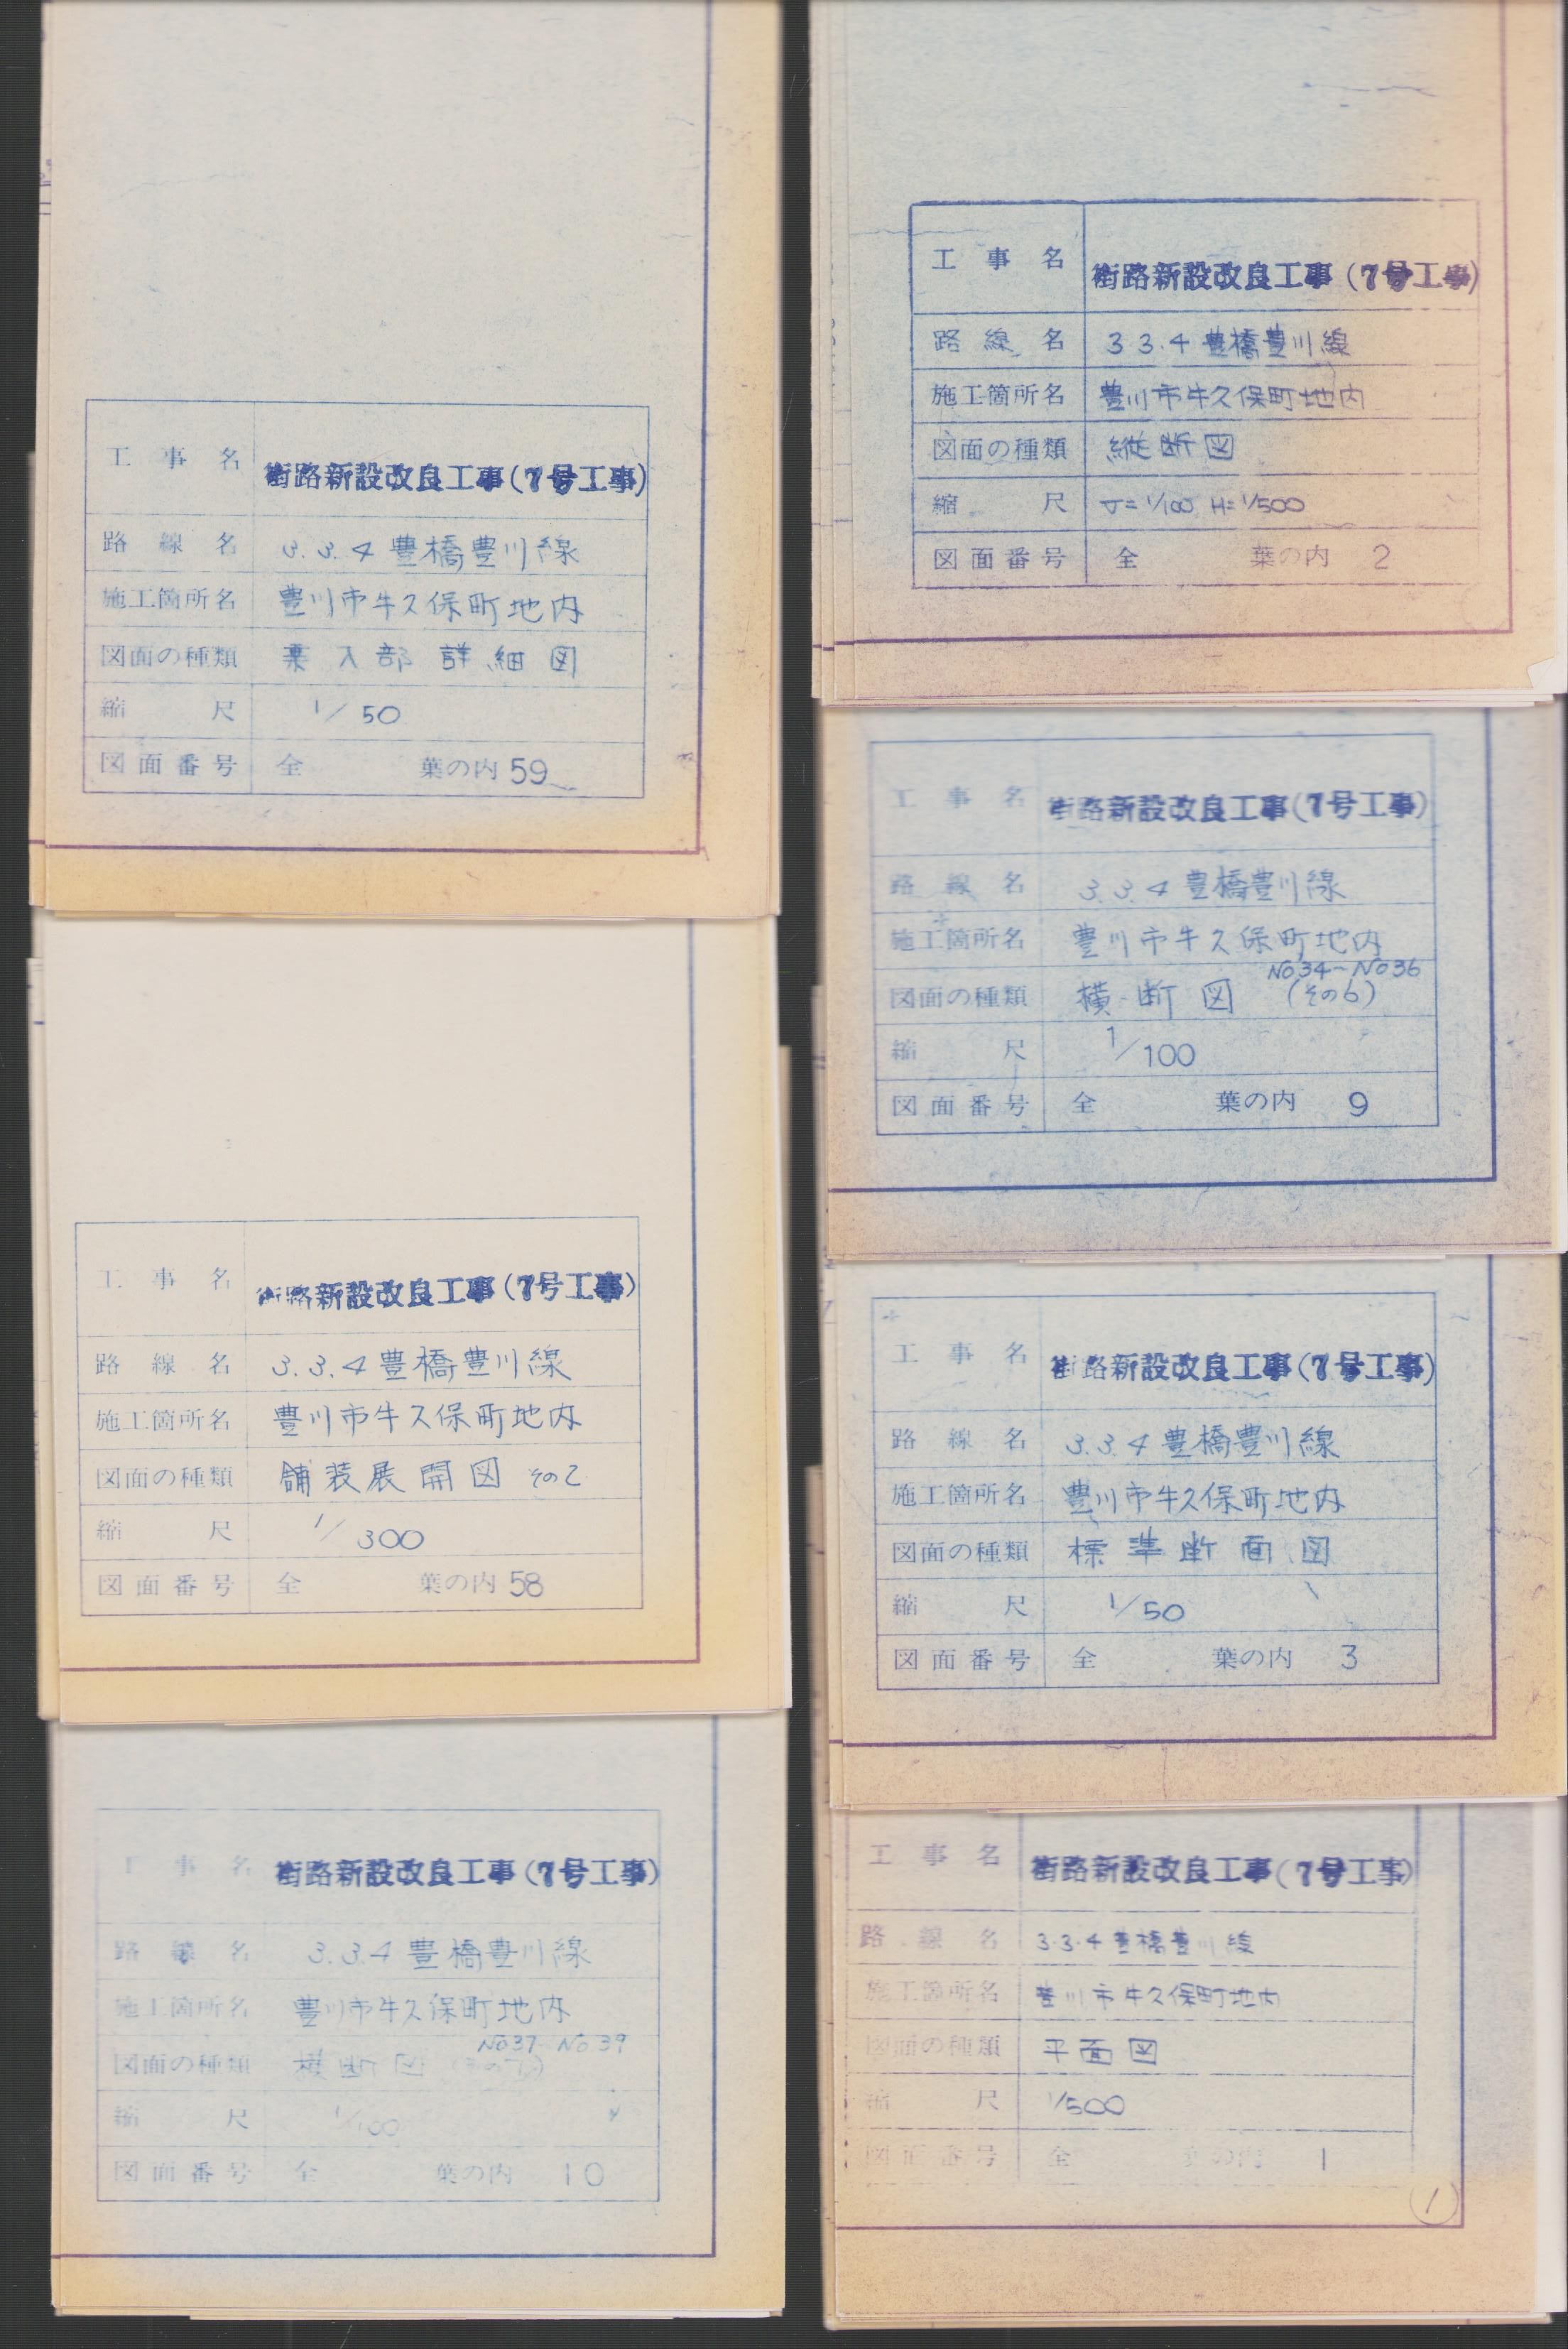 工事名 街路新設改良工事(7号工事)
路線名 3.3.4豊橋豊川線
施工箇所名 豊川市牛久保町地内
図面の種類 乗入部詳細図
縮尺 1/50
図面番号 全 葉の内 59
工事名 街路新設改良工事(7号工事)
路線名 3.3.4豊橋豊川線
施工箇所名 豊川市牛久保町地内
図面の種類 舗装展開図 その2
縮尺 1/300
図面番号 全 葉の内 58
工事名 街路新設改良工事(7号工事)
路線名 3.3.4豊橋豊川線
施工箇所名 豊川市牛久保町地内
No37 No39
図面の種類 横断図 (その7)
縮尺 1/100
図面番号 全 葉の内 10
工事名 街路新設改良工事(7号工事)
路線名 3 3.4豊橋豊川線
施工箇所名 豊川市牛久保町地内
図面の種類 縦断図
縮尺 V=1/100 H=1/500
図面番号 全 葉の内 2
工事名 街路新設改良工事(7号工事)
路線名 3.3.4豊橋豊川線
施工箇所名 豊川市牛久保町地内
No34~No36
図面の種類 横断図 (その6)
縮尺 1/100
図面番号 全 葉の内 9
工事名 街路新設改良工事(7号工事)
路線名 3.3.4豊橋豊川線
施工箇所名 豊川市牛久保町地内
図面の種類 標準断面図
縮尺 1/50
図面番号 全 葉の内 3
工事名 街路新設改良工事(7号工事)
路線名 3.3.4豊橋豊川線
施工箇所名 豊川市牛久保町地内
図面の種類 平面図
縮尺 1/500
図面番号 全 葉の内 1
1